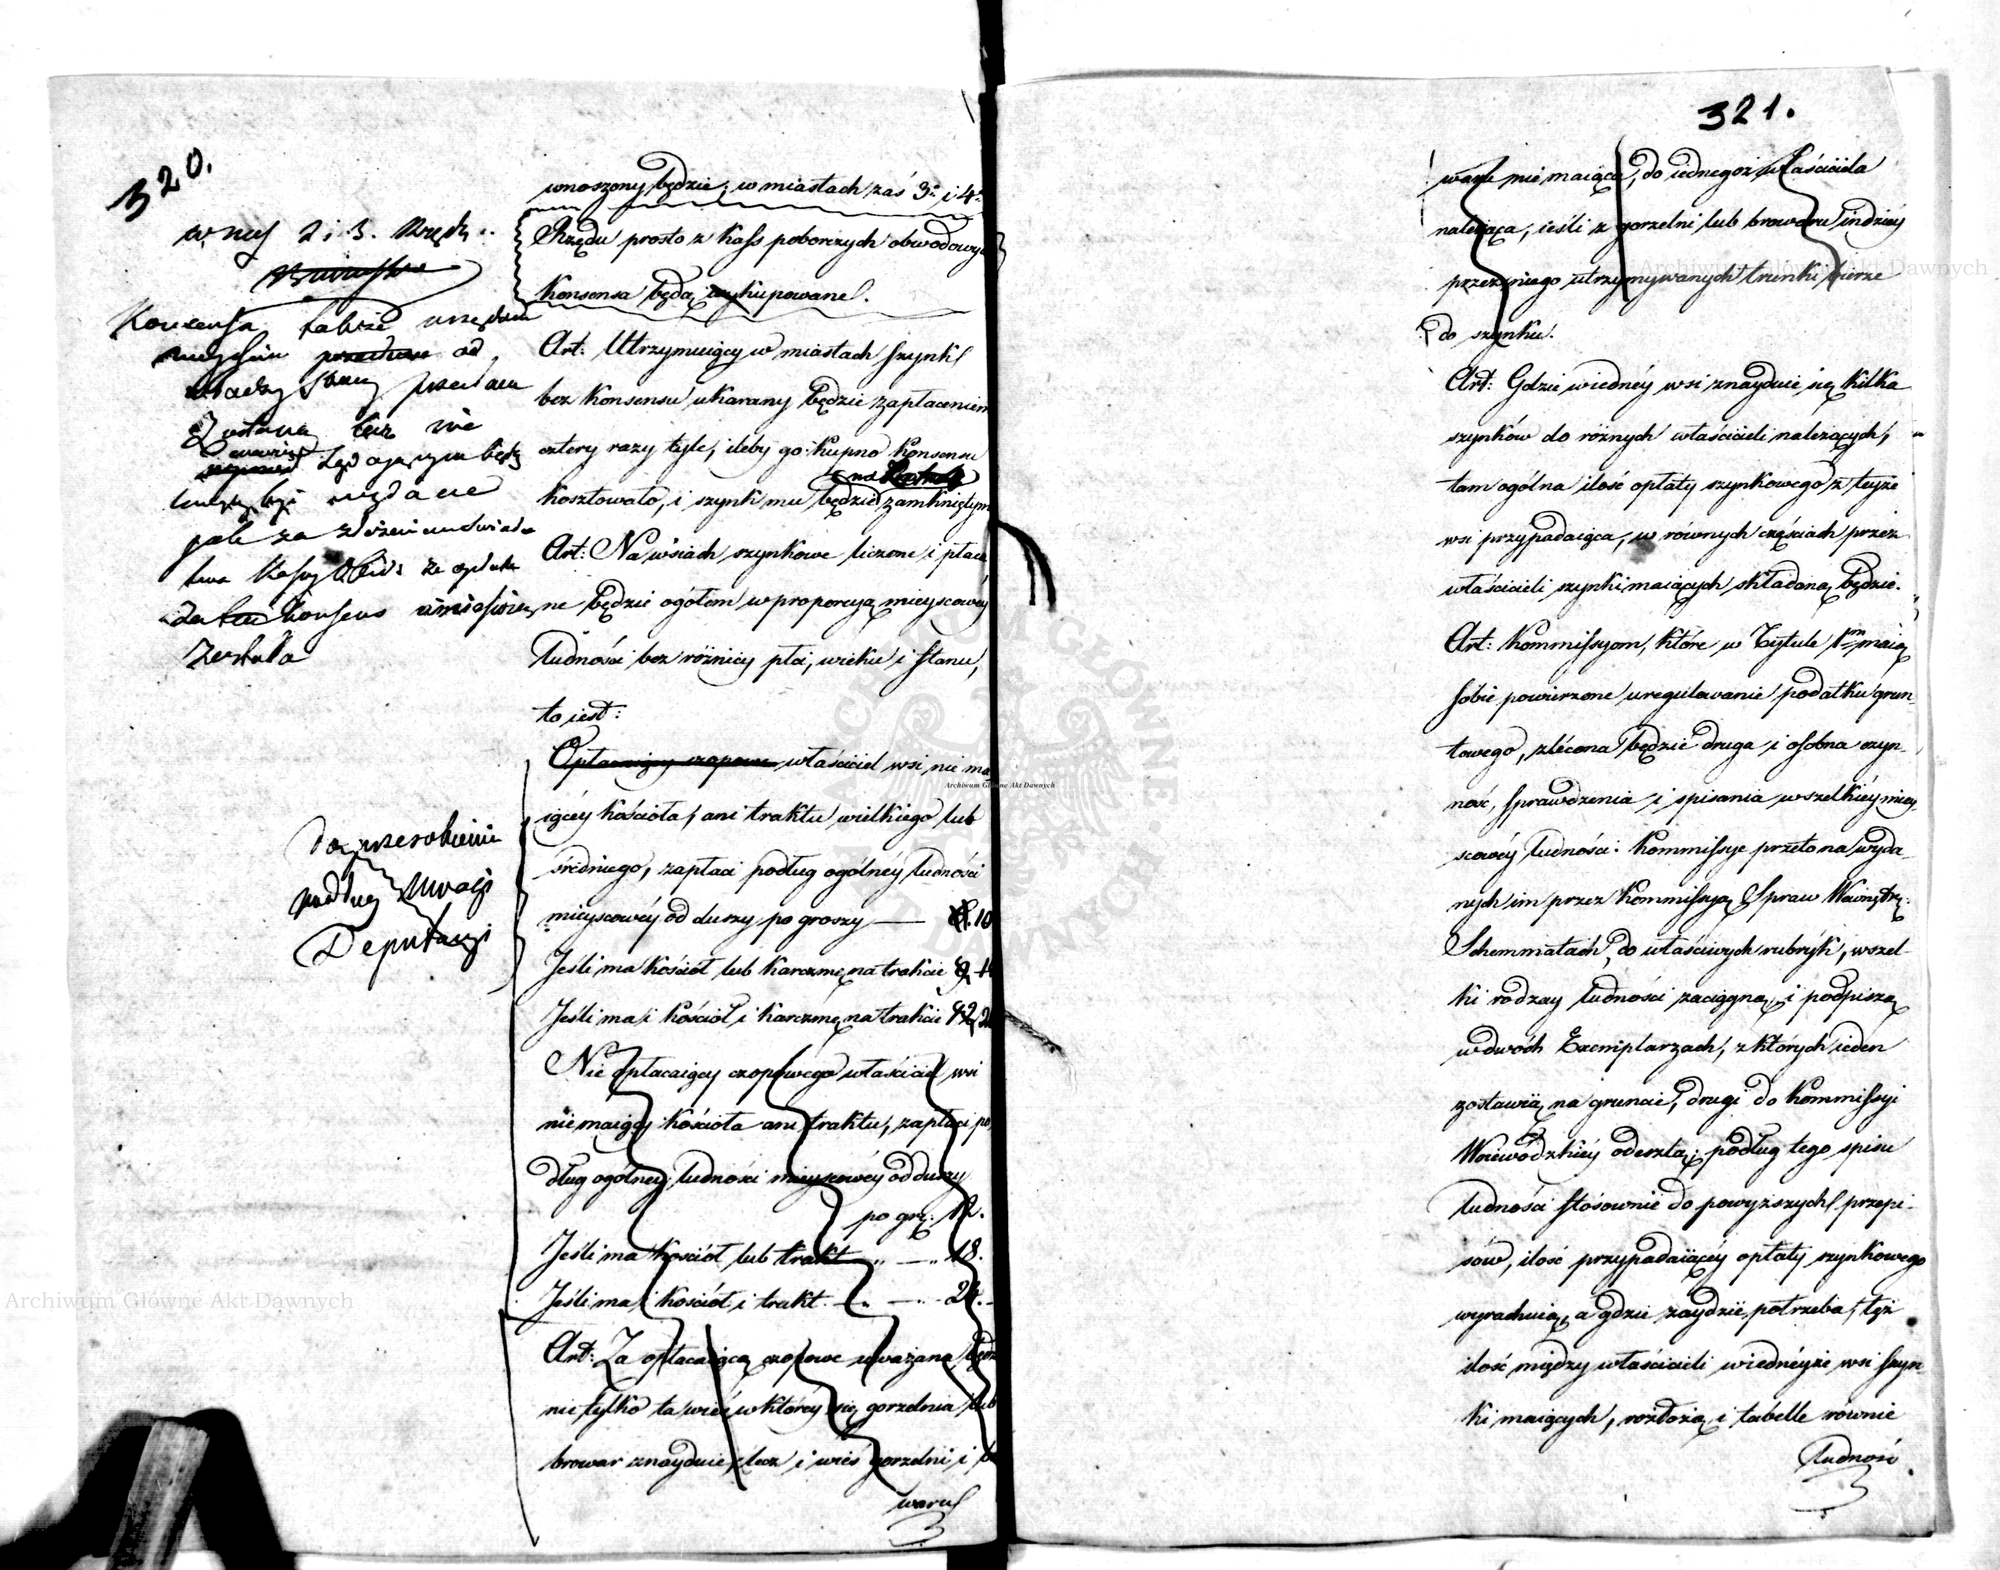 320.
w nich 2 i 3. Rzędu
Konsensa także urzędom
mieyskim od
władzy przesłane
Zostaną lecz nie
będą
wydane
jak za złożeniem świadec
twa Kassy że opłata
za Konsens uiszczona
Została
do przerobienia
według Uwagi
Deputacyi
wnoszony będzie; w miastach zaś 3º i 4º
Rzędu prosto z Kass poborczych obwodowych
Konsensa będą wykupowane.
Art: Utrzymuiący w miastach szynk
bez Konsensu ukarany będzie zapłaceniem
cztery razy tyle, ileby go kupno Konsensu
kosztowało, i szynk mu będzie zamkniętym
Art: Na wsiach szynkowe liczone i płaco
ne będzie ogółem w proporcyą mieyscowey
ludności bez różnicy płci, wieku i stanu,
to iest:
Opłacaiący czopowe właściciel wsi nie ma
iącéy kościoła, ani traktu wielkiego lub
średniego, zapłaci podług ogólnéy ludności
mieyscowéy od duszy po groszy — 10
Jeśli ma kościół lub karczmę na trakcie
Jeśli ma i kościół i karczmę na trakcie 12
Nie opłacaiący czopowego właściciel wsi
nie maiącéy kościoła ani traktu, zapłaci po
dług ogólnéy ludności mieyscowéy od duszy
po gr: 12.
Jeśli ma kościół lub trakt „ — „ 18.
Jeśli ma i kościół i trakt — „ — 24.
Art: Za opłacaiącą czopowe uważana będz
nie tylko ta wieś w któréy się gorzelnia lub
browar znayduie, lecz i wieś gorzelni i bro
waru
321.
waru nie maiąca, do iednegoż właściciela
należąca, ieśli z gorzelni lub browaru indziéy
przez niego utrzymywanych trunki bierze
do szynku.
Art: Gdzie w iednéy wsi znayduie się kilka
szynków do różnych właścicieli należących,
tam ogólna ilość opłaty szynkowego z teyże
wsi przypadaiąca, w równych częściach przez
właścicieli szynki maiących składaną będzie.
Art: Kommissyom, które w Tytule 1m maią
sobie powierzone uregulowanie podatku grun-
towego, zlécona będzie druga i osobna czyn-
ność, sprawdzenia i spisania wszelkiéy miey
scowéy ludności: Kommissye przeto na wyda-
nych im przez Kommissyą Spraw Wewnętrz:
Schemmatach, do właściwych rubryk, wszel-
ki rodzay ludności zaciągną, i podpiszą
w dwóch Exemplarzach, z których ieden
zostawią na gruncie, drugi do Kommissyi
Woiewódzkiéy odeszlą; podług tego spisu
ludności stósownie do powyższych przepi-
sów, ilość przypadaiącéy opłaty szynkowego
wyrachuią, a gdzie zaydzie potrzeba, tęż
ilość między właścicieli w iednéyże wsi szyn-
ki maiących, rozłożą i tabelle równie
ludność